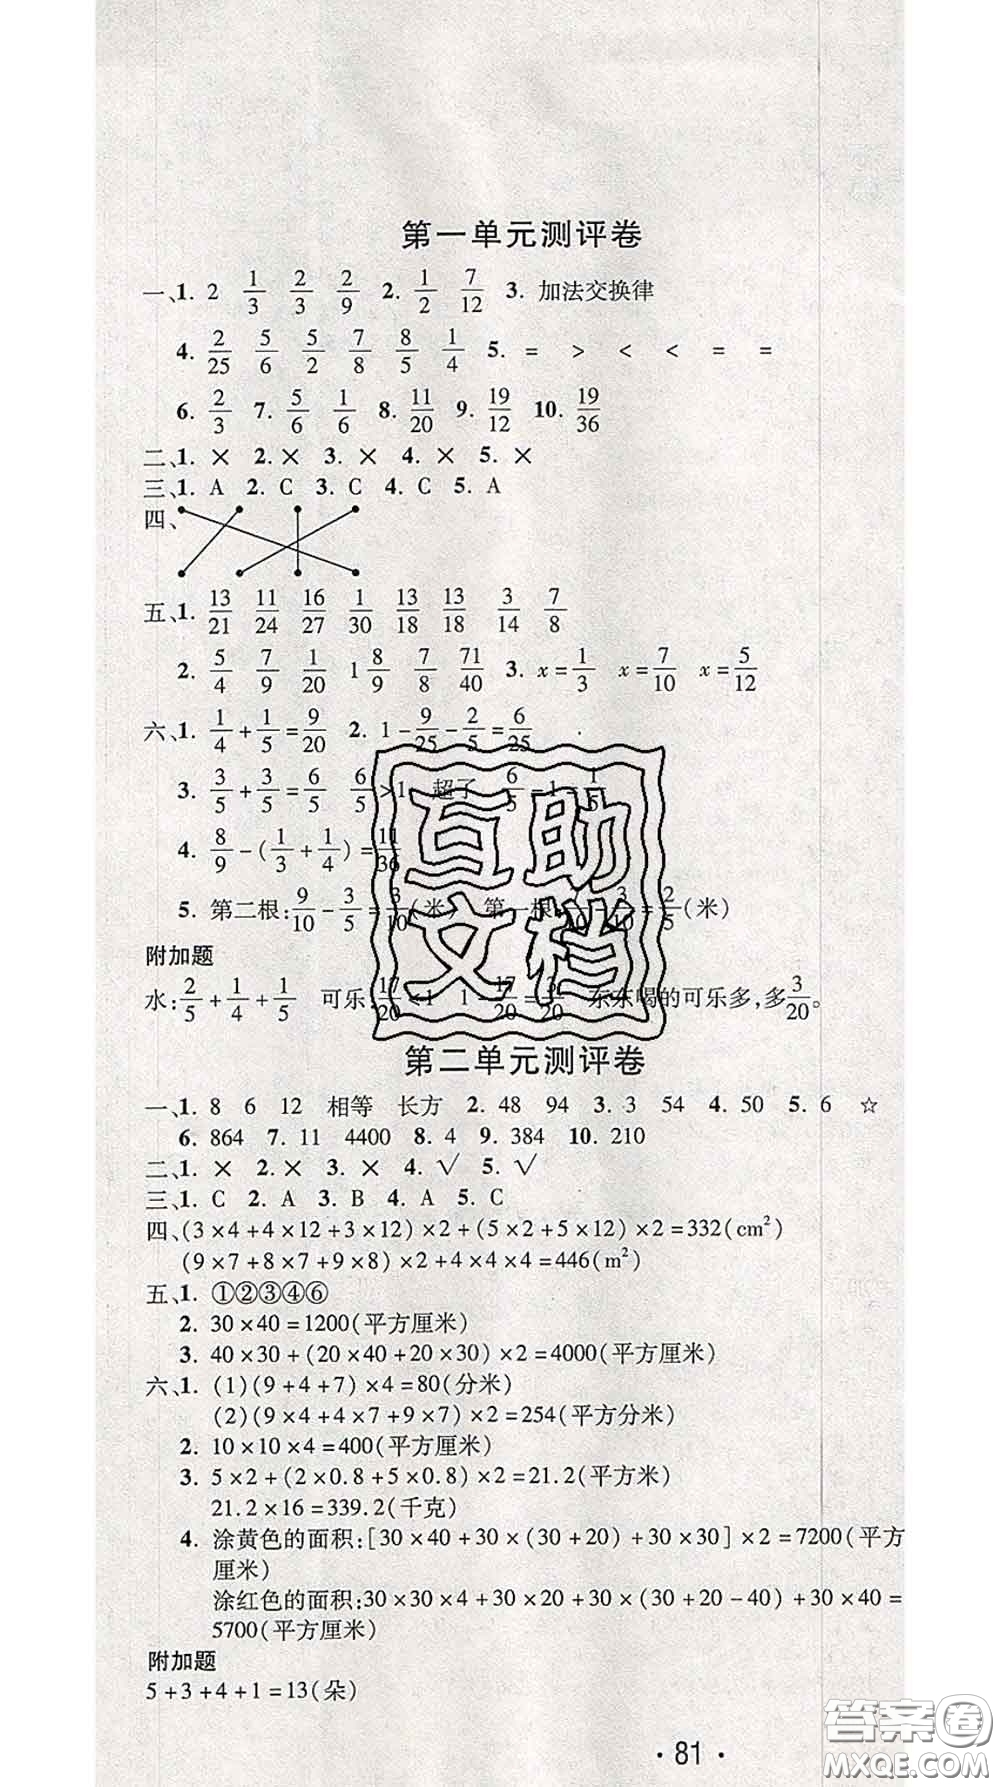 第一单元测评卷
一、1. 2 1/3 2/3 2/9 2. 1/2 7/12 3. 加法交换律
4. 2/25 5/6 5/2 7/8 8/5 1/4 5. = > < < = =
6. 2/3 7. 5/6 1/6 8. 11/20 9. 19/12 10. 19/36
二、1. × 2. × 3. × 4. × 5. ×
三、1. A 2. C 3. C 4. C 5. A
四、
五、1. 13/21 11/24 16/27 1/30 13/18 13/18 3/14 7/8
2. 5/4 7/9 1/20 1 8/9 7/8 71/40 3. x=1/3 x=7/10 x=5/12
六、1. 1/4+1/5=9/20 2. 1-9/25-2/5=6/25
3. 3/5+3/5=6/5 6/5>1 超了 6/5-1=1/5
4. 8/9-(1/3+1/4)=11/36
5. 第二根:9/10-3/5=3/10(米) 第 根 3/10=2/5(米)
附加题
水:2/5+1/4+1/5 可乐:17/20<1 1-17/20=3/20 东东喝的可乐多,多3/20。
互助文档
第二单元测评卷
一、1. 8 6 12 相等 长方 2. 48 94 3. 3 54 4. 50 5. 6 ☆
6. 864 7. 11 4400 8. 4 9. 384 10. 210
二、1. × 2. × 3. × 4. √ 5. √
三、1. C 2. A 3. B 4. A 5. C
四、(3×4+4×12+3×12)×2+(5×2+5×12)×2=332(cm²)
(9×7+8×7+9×8)×2+4×4×4=446(m²)
五、1. ①②③④⑥
2. 30×40=1200(平方厘米)
3. 40×30+(20×40+20×30)×2=4000(平方厘米)
六、1. (1)(9+4+7)×4=80(分米)
(2)(9×4+4×7+9×7)×2=254(平方分米)
2. 10×10×4=400(平方厘米)
3. 5×2+(2×0.8+5×0.8)×2=21.2(平方米)
21.2×16=339.2(千克)
4. 涂黄色的面积:[30×40+30×(30+20)+30×30]×2=7200(平方
厘米)
涂红色的面积:30×30×4+30×20+30×(30+20-40)+30×40=
5700(平方厘米)
附加题
5+3+4+1=13(朵)
· 81 ·
答案卷
MXQE.COM